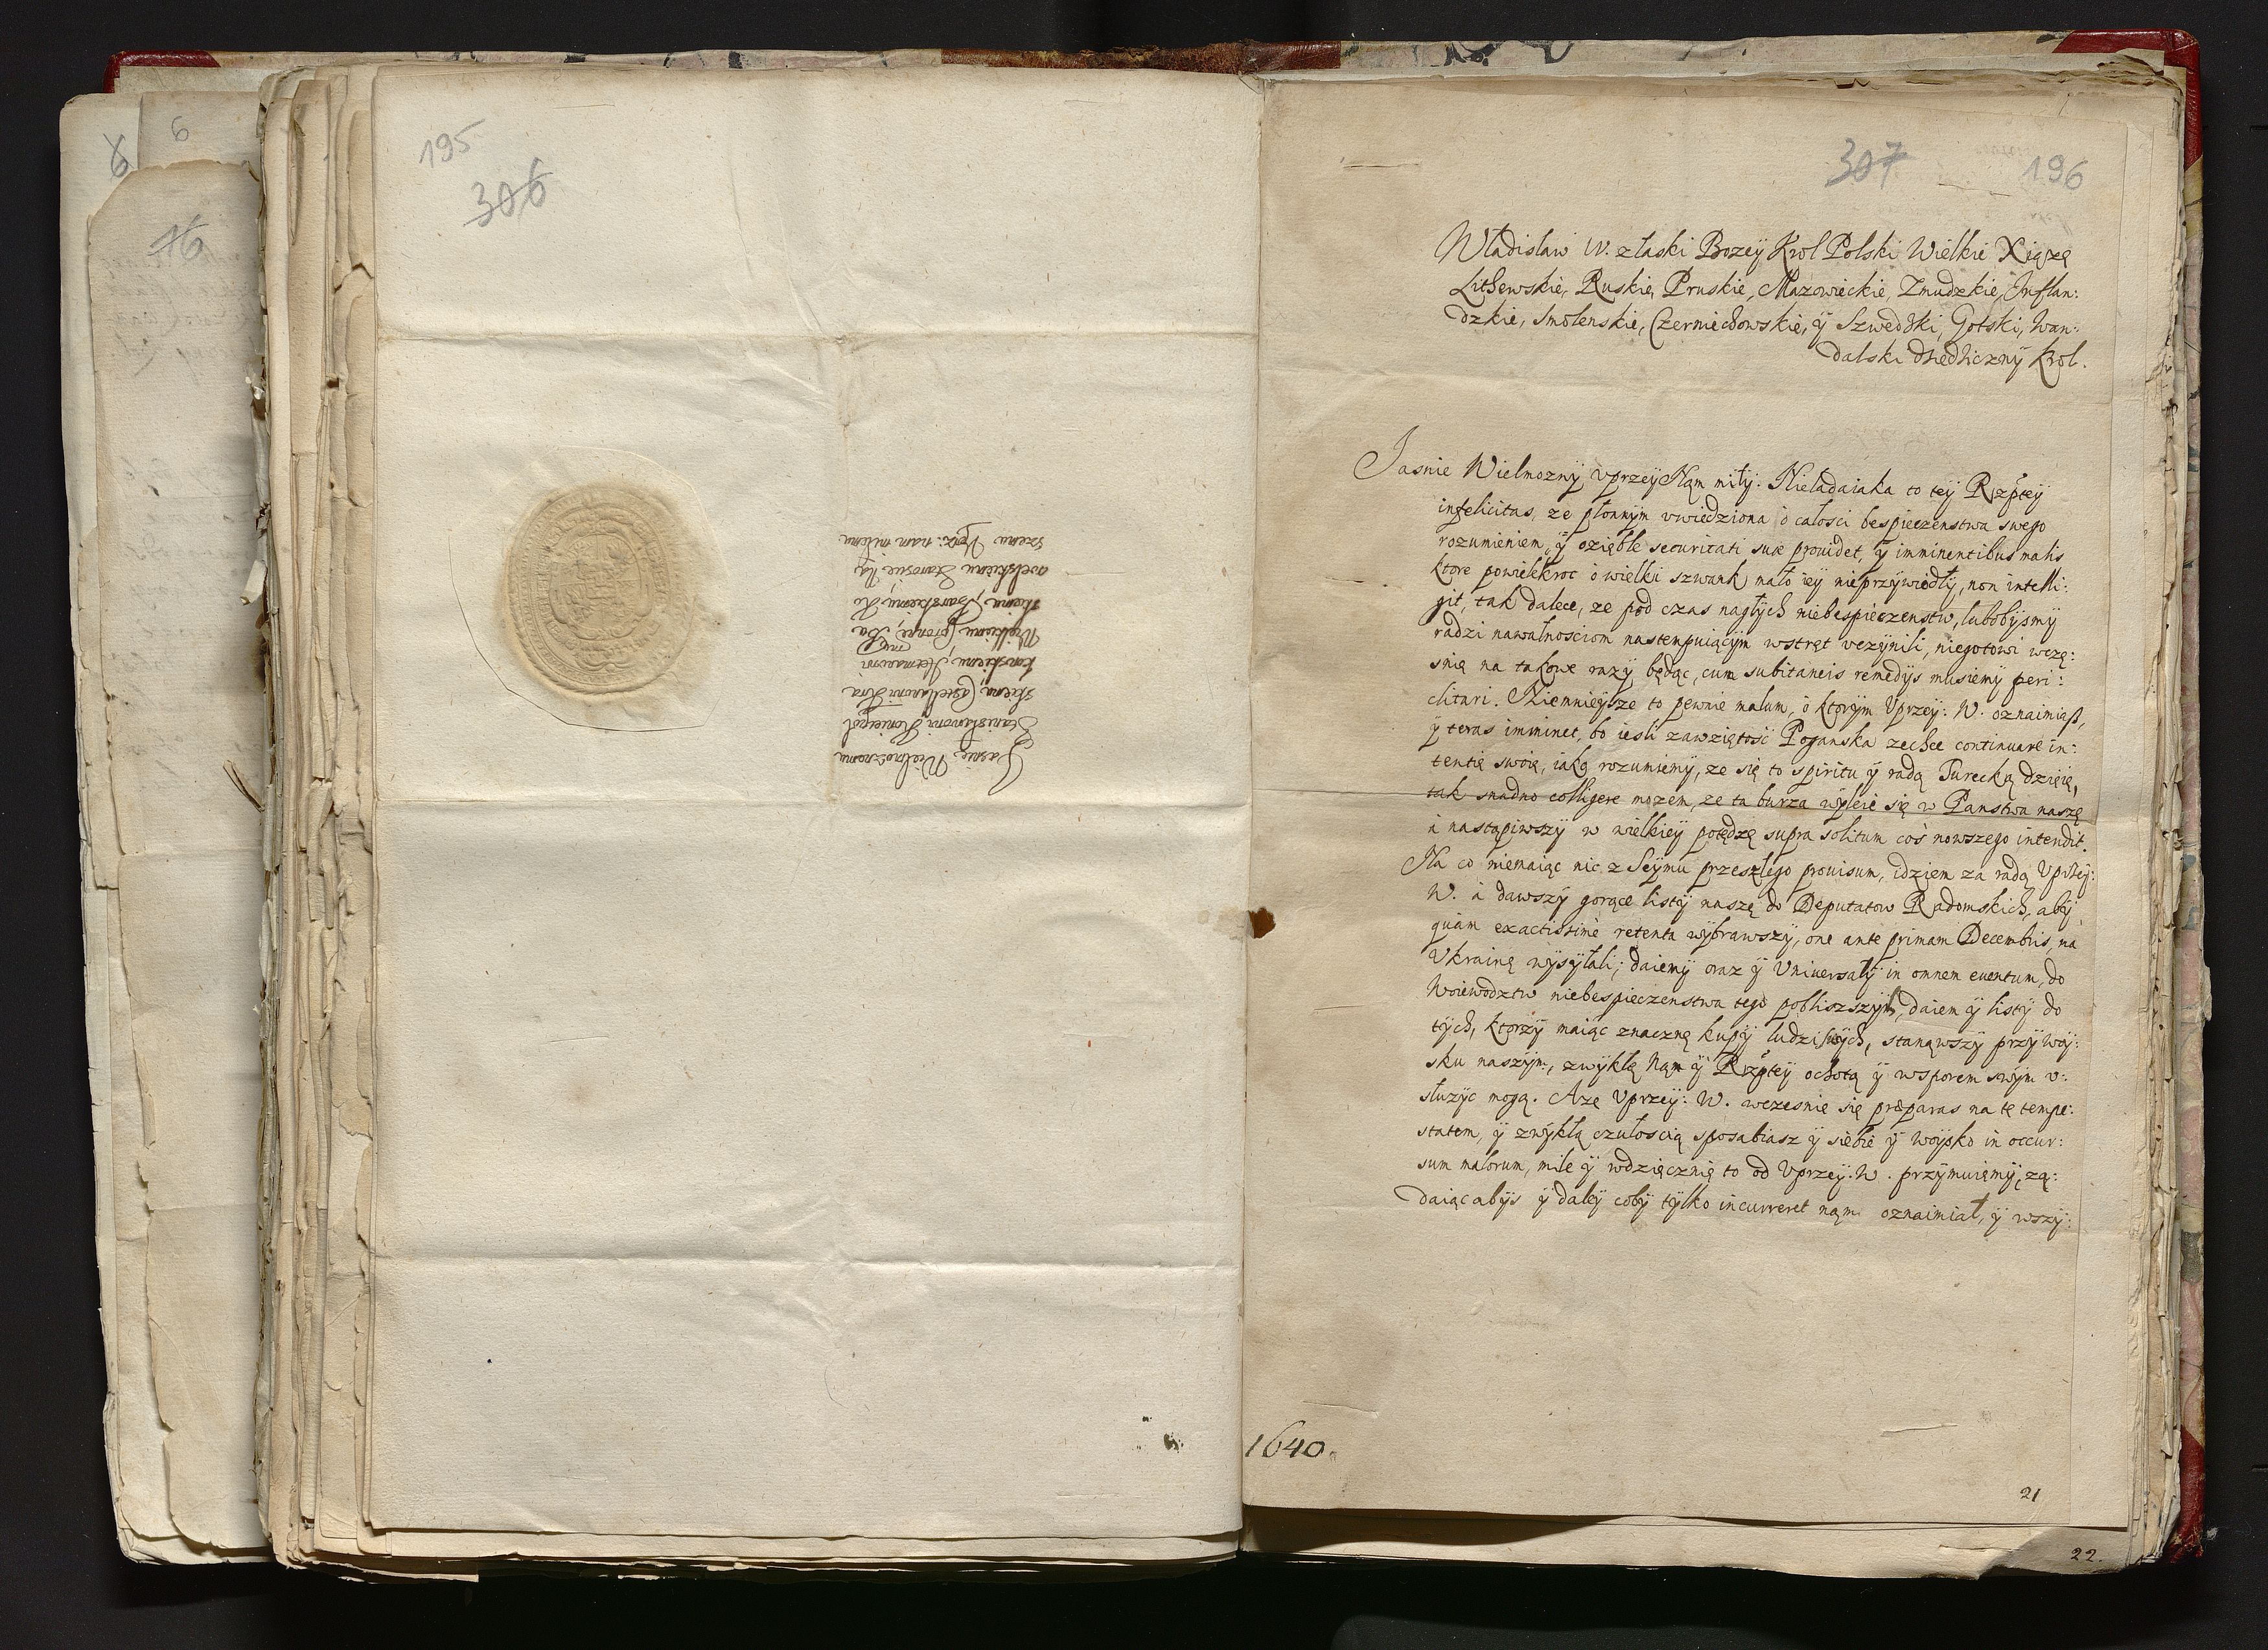 6
6
76
195
306
Jasnie Wielmoznemu
Stanisławowi Koniecpol
skiemu Castellanowi Kra
kowskiemu, Hetmanowi
nmu
Wielkiemu Coronne, Ba
skiemu, Barskiemu, Ko
welskiemu Staroscie Ug
szemu Uprz: nam milemu
307
196
Władisław IV. złaski Bozeÿ Krol Polski Wielkie Xiązę
Lithewskie, Ruskie, Pruskie, Mazowieckie, Zmudzkie, Inflan:
dzkie, Smolenskie, Czerniechowskie, ÿ Szwedzki, Gotski, Wan:
dalski dziedziczny Krol.
Jasnie Wielmoznÿ VprzeÿNąm miłÿ: Nieladaiaka to teÿ Rzpteÿ
infelicitas, ze płonnÿm vwiedziona o całosci bespieczenstwa swego
rozumieniem, ÿ ozięble securitati suæ prouidet, ÿ imminentibus malis
ktore powielekroc o wielki szwank mało ieÿ nieprzÿwiodłÿ, non intelli:
git, tak dalece, ze pod czas nagłÿch niebespieczenstw, lubobÿsmÿ
radzi nawałnosciom nastempuiącÿm wstręt vczÿnili, niegotowi wczę:
snie na takowe razÿ będąc, cum subitaneis remedÿs musiemÿ peri:
clitari. Niemnieÿsze to pewnie malum, o ktorÿm Vprzeÿ: W. oznaimiasz,
ÿ teras imminet, bo iesli zawziętość Poganska zechce continuare in:
tentię swoię, iako rozumiemÿ, ze się to spiritu ÿ radą Turecką dzieie,
tak snadno colligere mozem, ze ta burza wÿleie się w Panstwa naszę
i nastąpiwszÿ w wielkieÿ potędzę supra solitum coś nowszego intendit.
Na co niemaiąc nic z Seÿmu przeszłego prouisum, idziem za radą Vprzeÿ:
W. i dawszÿ gorące listÿ naszę do Deputatow Radomskich, abÿ
quam exactissime retenta wÿbrawszÿ, one ante primam Decembris, na
Vkrainę wÿsÿłali; daiemÿ oraz ÿ Vniuersałÿ in omnem euentum, do
Woiewodztw niebespieczenstwa tego pobliszszÿch, daiem ÿ listÿ do
tÿch, ktorzÿ maiąc znacznę kupÿ ludzi swÿch, stanąwszÿ przÿ woÿ:
sku naszÿm, zwÿkłą Nąm ÿ Rzptey ochotą ÿ wsporem swÿm v:
słuzÿc mogą. Azę Vprzeÿ: W. wczesnie się præparas na tę tempe:
statem, ÿ zwÿkłą czułoscią sposabiasz ÿ siebie ÿ woÿsko in occur:
sum malorum, mile ÿ wdzięcznię to od Vprzeÿ: W. przÿmuięmÿ, zą:
daiąc abÿs ÿ daleÿ cobÿ tÿlko incurreret nąm oznaimiał, ÿ wszÿ:
1640.
21
22.